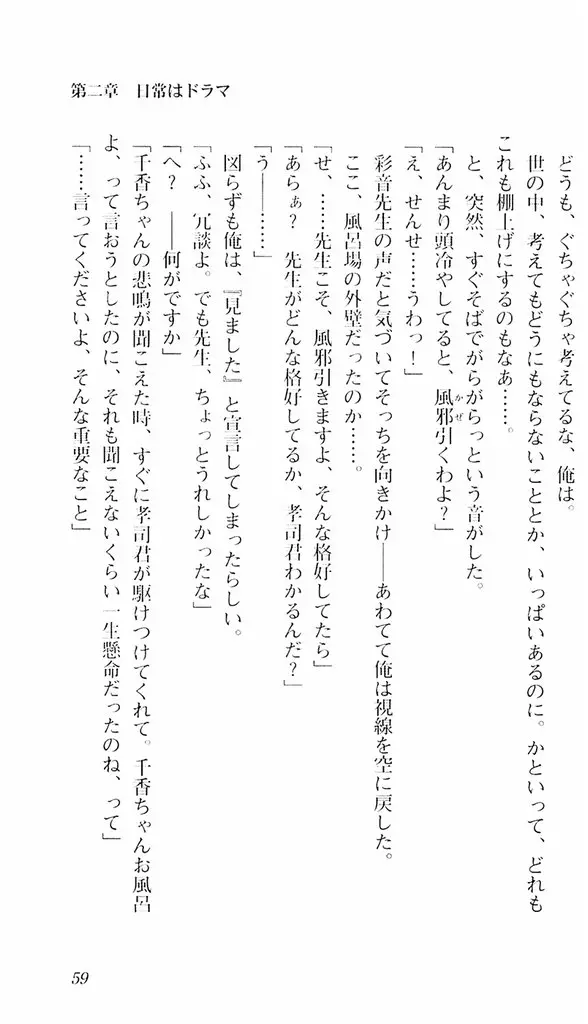 第二章　日常はドラマ
どうも、ぐちゃぐちゃ考えてるな、俺は。
世の中、考えてもどうにもならないこととか、いっぱいあるのに。かといって、どれも
これも棚上げにするのもなあ……。
と、突然、すぐそばでがらがらっという音がした。
「あんまり頭冷やしてると、風邪引くわよ？」
かぜ
「え、せんせ……うわっ！」
彩音先生の声だと気づいてそっちを向きかけ――あわてて俺は視線を空に戻した。
ここ、風呂場の外壁だったのか……。
「せ、……先生こそ、風邪引きますよ、そんな格好してたら」
「あらぁ？　先生がどんな格好してるか、孝司君わかるんだ？」
「う――……」
図らずも俺は、『見ました』と宣言してしまったらしい。
「ふふ、冗談よ。でも先生、ちょっとうれしかったな」
「へ？　――何がですか」
「千香ちゃんの悲鳴が聞こえた時、すぐに孝司君が駆けつけてくれて。千香ちゃんお風呂
よ、って言おうとしたのに、それも聞こえないくらい一生懸命だったのね、って」
「……言ってくださいよ、そんな重要なこと」
59